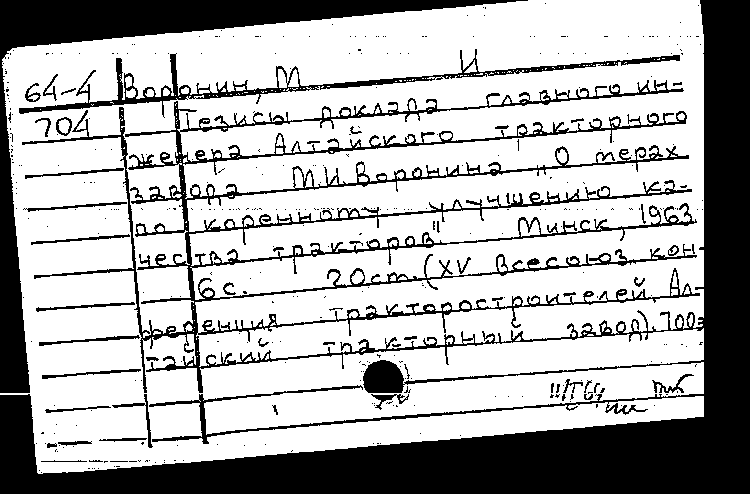 64-4 Воронин, М И
704 Тезисы доклада главного ин-
женера Алтайского тракторного
завода М.И.Воронина „О мерах
по коренному улучшению ка-
чества тракторов". Минск, 1963
6 с. 20 см. (XV Всесоюз. кон-
ференция тракторостроителей. Ал-
тайский тракторный завод). 700э